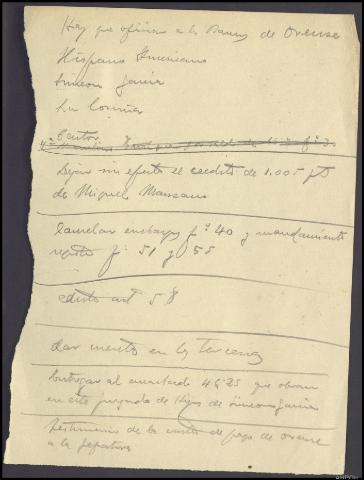 Hay que oficiar a los Bancos de Orense
Hispano Americano
Simeon Garcia
La Coruña
Dejar sin efecto el credito de 1.005 pts
de Miguel Manzano
Cancelar embargo fº 40 y mandamiento
registro fº 51 y 55
edicto art 58
dar cuenta en las
Entregar al encartado 4625 que obran
en este juzgado de Hijos de Simeon Garcia
testimonio de la carta de pago de orense
a la Jefatura